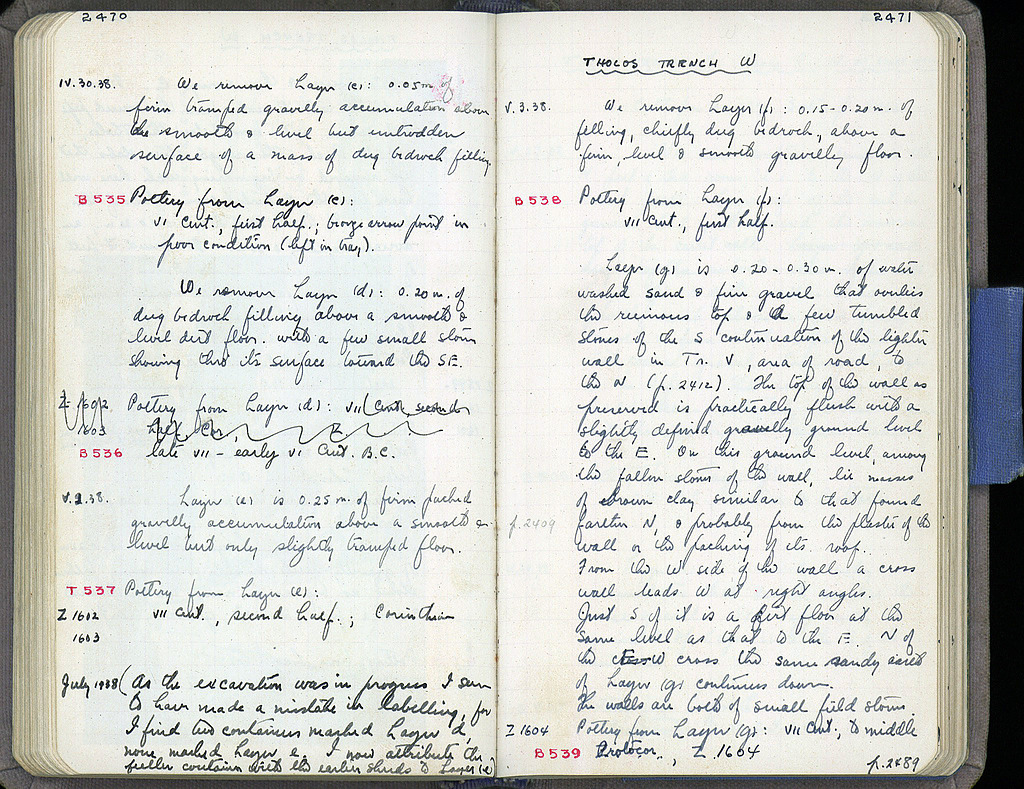 2470
IV.30.38. We remove Layer (c): 0.05 m. of
firm tramped gravelly accumulation above
the smooth & level but untrodden
surface of a mass of dug bedrock filling.
B 535 Pottery from Layer (c):
VI Cent., first half.; bronze arrow point in
poor condition (left in tray).
We remove Layer (d): 0.20 m. of
dug bedrock filling above a smooth &
level dirt floor. with a few small stones
showing thru its surface toward the SE.
Z 1602 Pottery from Layer (d): VII Cent., second
1603 half Cor., Z
B 536 late VII - early VI Cent. B.C.
V.2.38. Layer (e) is 0.25 m. of firm packed
gravelly accumulation above a smooth &
level but only slightly tramped floor.
T 537 Pottery from Layer (e):
Z 1602 VII Cent., second half.; Corinthian
1603
July 1938 (As the excavation was in progress I seem
to have made a mistake in labelling, for
I find two containers marked Layer 'd',
none marked Layer e. I now attribute the
fuller container with the earlier sherds to Layer (e)
2471
THOLOS TRENCH W
V.3.38. We remove Layer (f): 0.15-0.20 m. of
filling, chiefly dug bedrock, above a
firm, level & smooth gravelly floor.
B 538 Pottery from Layer (f):
VII Cent., first half.
Layer (g) is 0.20-0.30 m. of water
washed sand & fine gravel that overlies
the ruinous top & a few tumbled
stones of the S continuation of the lighter
wall in Tr. V, area of road, to
the N (p. 2412). The top of the wall as
preserved is practically flush with a
slightly defined gravelly ground level
to the E. On this ground level, among
the fallen stones of the wall, lie masses
of brown clay similar to that found
p. 2409 farther N, & probably from the plaster of the
wall or the packing of its roof.
From the W side of the wall a cross
wall leads W at right angles.
Just S of it is a dirt floor at the
same level as that to the E. N of
the cross the same sandy
of Layer (g) continues down.
The walls are both of small field stones.
Z 1604 Pottery from Layer (g): VII Cent., to middle
B 539 Protocor., Z 1604
p. 2489